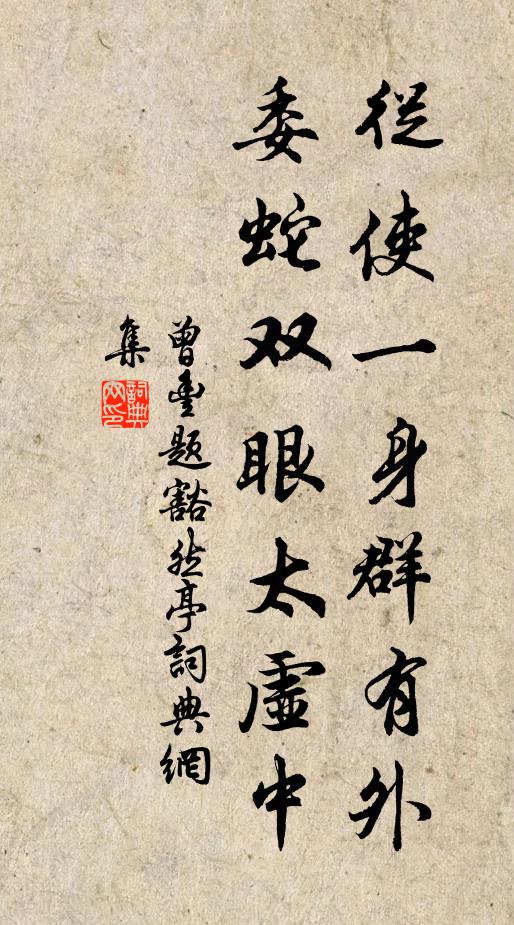 從使一身群有外
委蛇双眼太虛中
曾豊題豁然亭詞典網
集
詞典网印